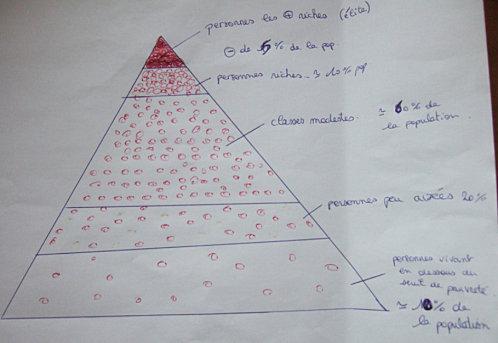 personnes les ⊕ riches (élite)
⊖ de 5% de la pop.
personnes riches ≃ 10% pop
classes modestes. ≃ 60% de
la population.
personnes peu aisées 20%
personnes vivant
en dessous du
seuil de pauvreté
≃ 10% de
la population